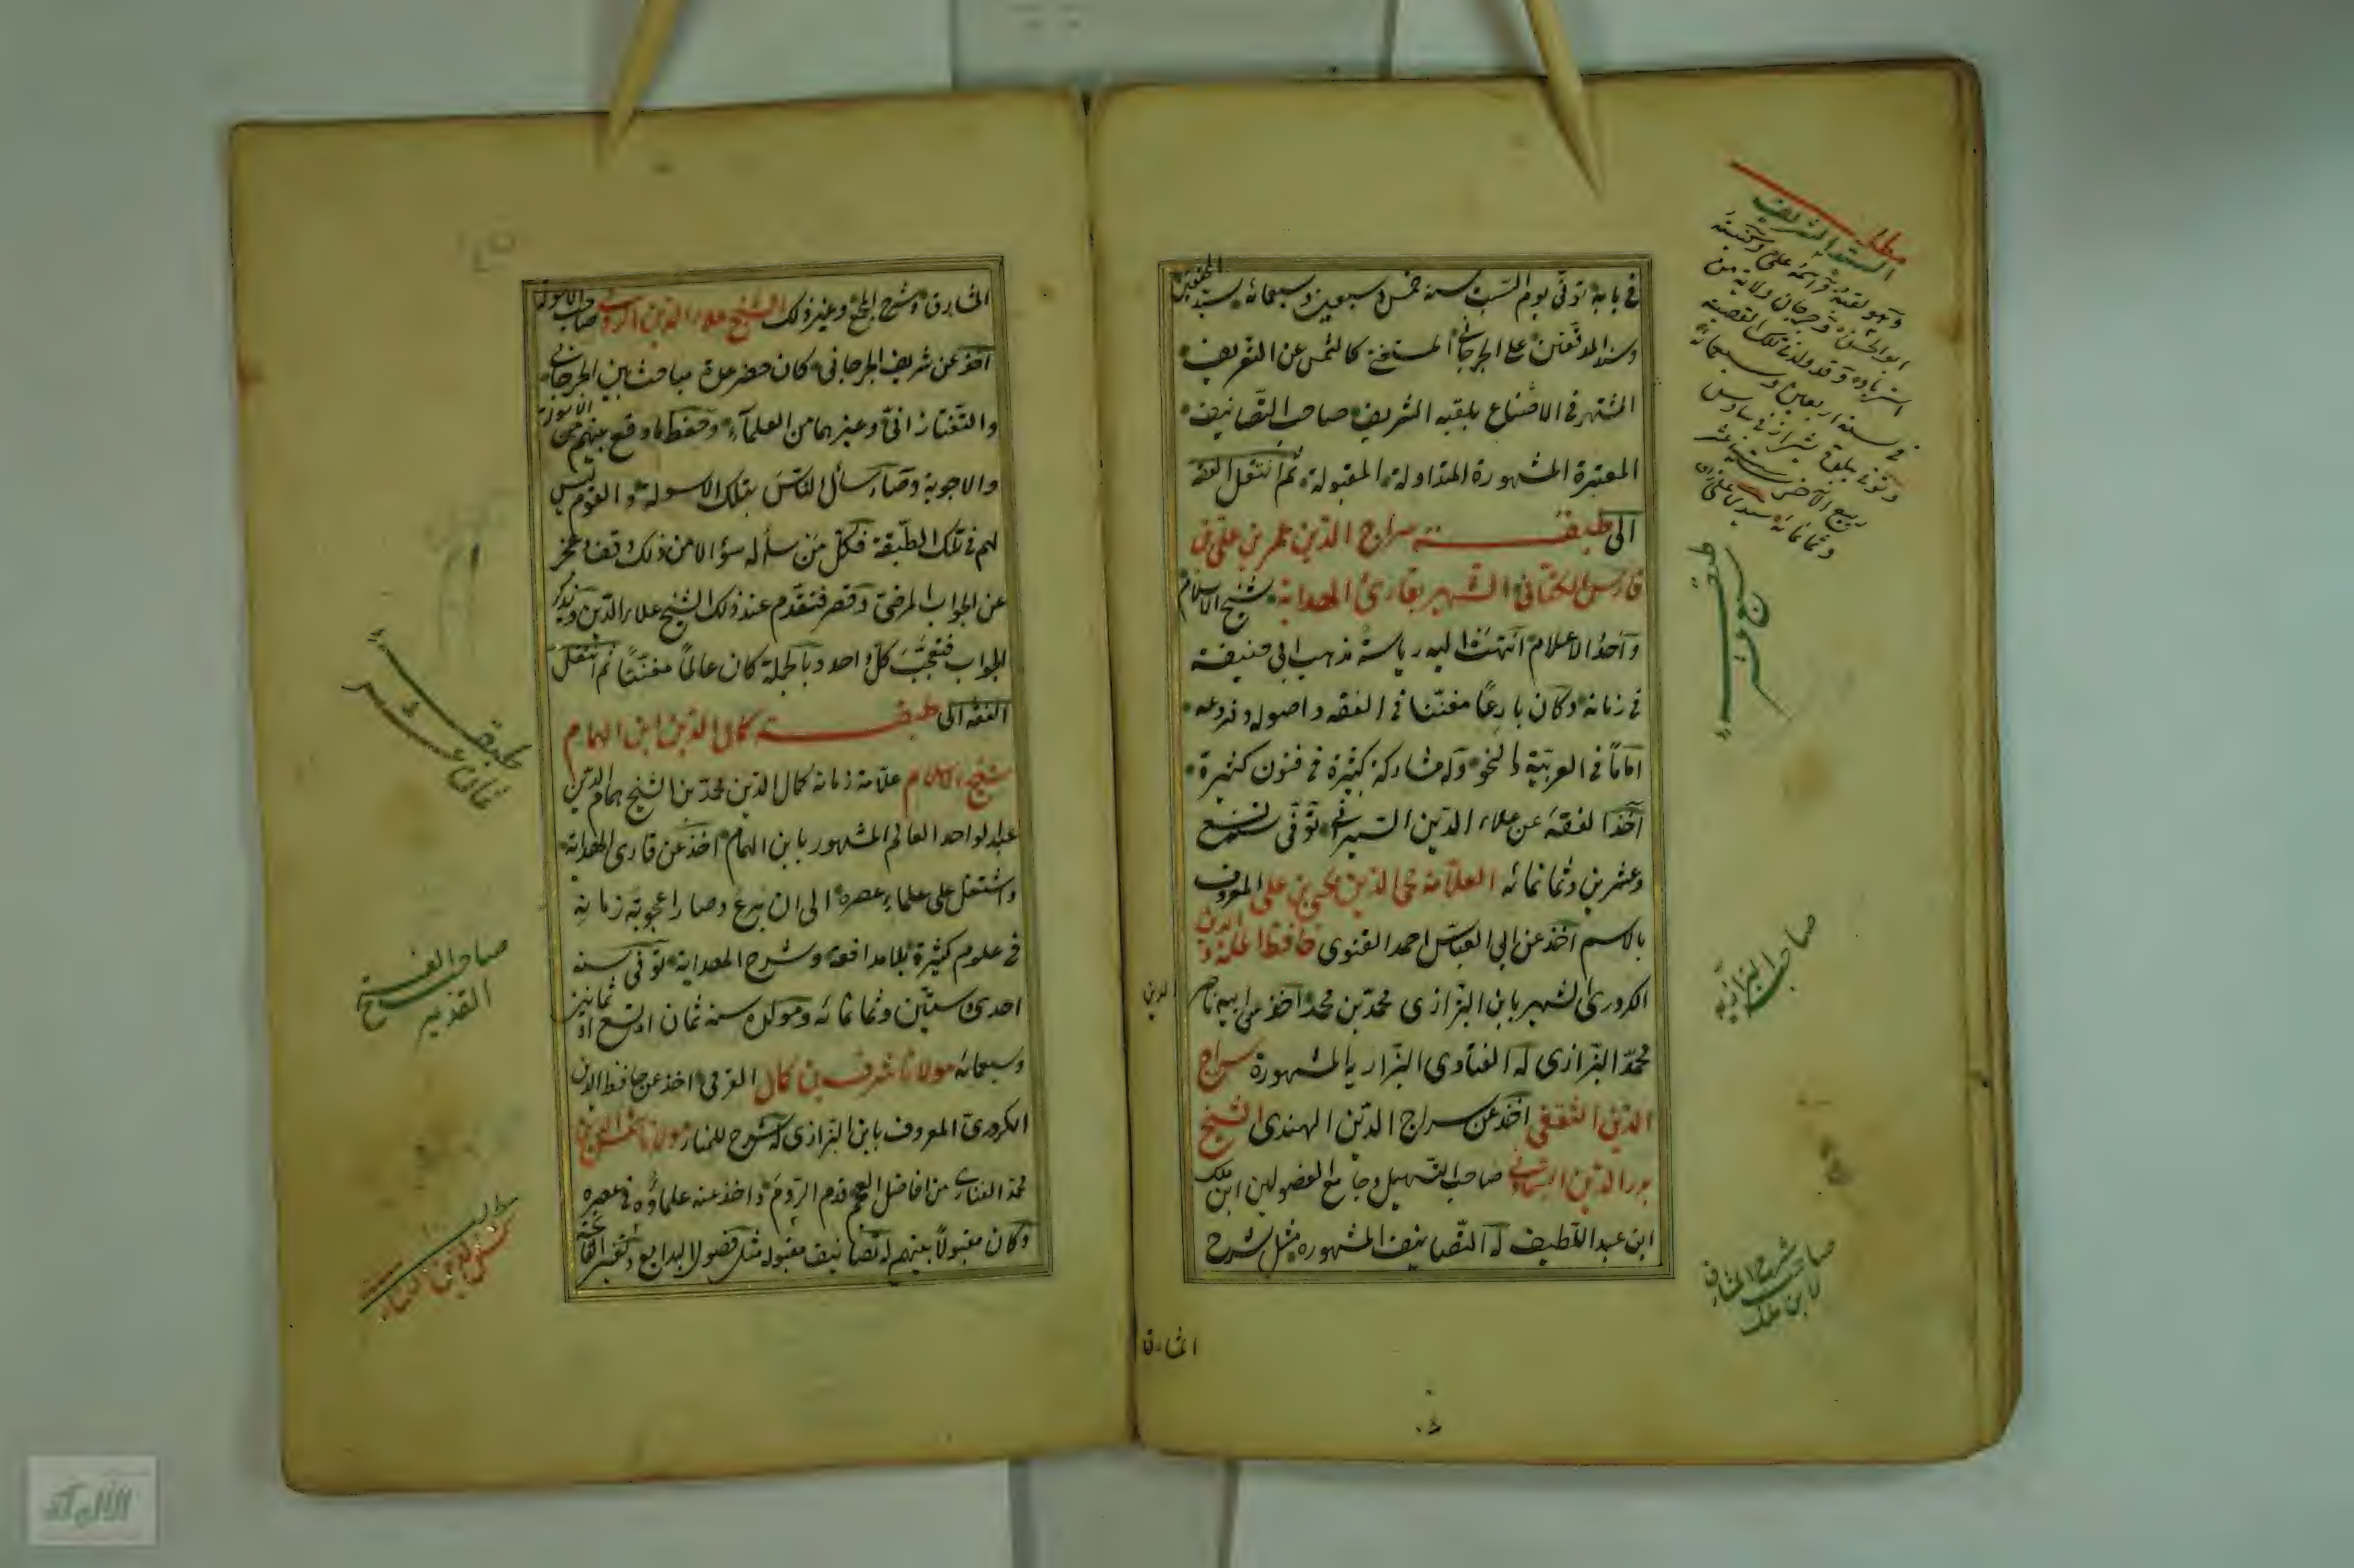 في بابه توفى يوم السبت سنة خمس وسبعين وسبعمائة سند المحققين
وسند المدققين علي الجرجاني المستغنى كالشمس عن التعريف
المشتهر في الاصقاع بلقبه الشريف صاحب التصانيف
المعتبرة المشهورة المتداولة المقبولة ثم انتقل الفقه
الى طبقة سراج الدين عمر بن علي بن
فارس الكناني الشهير بقارئ الهداية شيخ الاسلام
وآحد الاعلام انتهت اليه رياسة مذهب ابي حنيفة
في زمانه وكان بارعا مفننا في الفقه واصوله وفروعه
اماما في العربية والنحو وله مشاركة كثيرة في فنون كثيرة
آخذ الفقه عن علاء الدين السيرافي توفى سنة تسع
وعشرين وثمانمائه العلامة محي الدين يحيى بن علي المعروف
بالاسم آخذ عن ابي العباس احمد القنوى حافظ الملة والدين
الكردرى الشهير بابن البزازى محمد بن محمد اخذ عن ابيه ناصر الدين
محمد البزازى له الفتاوى البزازية المشهورة سراج
الدين الثقفي اخذ عن سراج الدين الهندى الشيخ
بدر الدين السماوني صاحب التسهيل وجامع الفصولين ابن ملك
ابن عبد اللطيف له التصانيف المشهوره مثل شرح
المشارق
مطلب
السيد الشريف
وهو لقبه واسمه علي وكنيته
ابو الحسن وجرجان ولاية من
استراباد وقد ولد بتلك القصبة
في سنة اربعين وسبعمائة
وتوفي ببلدة شيراز في سادس
ربيع الآخر سنة ست عشر
وثمانمائة
طبقة
سبع عشر
صاحب البزازيه
صاحب شرح المشارق
لابن ملك
المشارق وشرح المجمع وغير ذلك الشيخ علاء الدين الرومي صاحب الاسولة
اخذ عن شريف الجرجاني كان حضر عدة مباحث بين الجرجاني
والتفتازاني وغيرهما من العلمآء وحفظ ما وقع بينهم من الاسولة
والاجوبة وصار سأل الناس بتلك الاسولة والقوم ليس
لهم في تلك الطبقة فكل من سأله سؤالا من ذلك وقف وعجز
عن الجواب المرضى وقصر فتقدم عند ذلك الشيخ علاء الدين ويذكر
الجواب فتعجب كل واحد وبالجملة كان عالما مفننا ثم انتقل
الفقه الى طبقة كمال الدين ابن الهمام
شيخ الاسلام علامة زمانه كمال الدين محمد بن الشيخ همام الدين
عبد لواحد العالم المشهور بابن الهمام اخذ عن قارى الهداية
واشتغل على علماء عصره الى ان برع وصار اعجوبة زمانه
في علوم كثيرة بلا مدافعة وشرح الهداية توفى سنة
احدى وستين وثمانمائه ومولده سنة ثمان او تسع او ثمانين
وسبعمائه مولانا شرف بن كمال القرمي اخذ عن حافظ الدين
الكردرى المعروف بابن البزازى له شرح للمنار مولانا شمس الدين
محمد الفنارى من افاضل العجم قدم الروم واخذ عنه علماؤه في عصره
وكان مقبولا بينهم له تصانيف مقبوله مثل فصول البدايع وتفسير الفاتحة
طبقة
ثمان عشر
صاحب الفتح
القدير
مطلب
شمس الدين الفناري
الألوكة